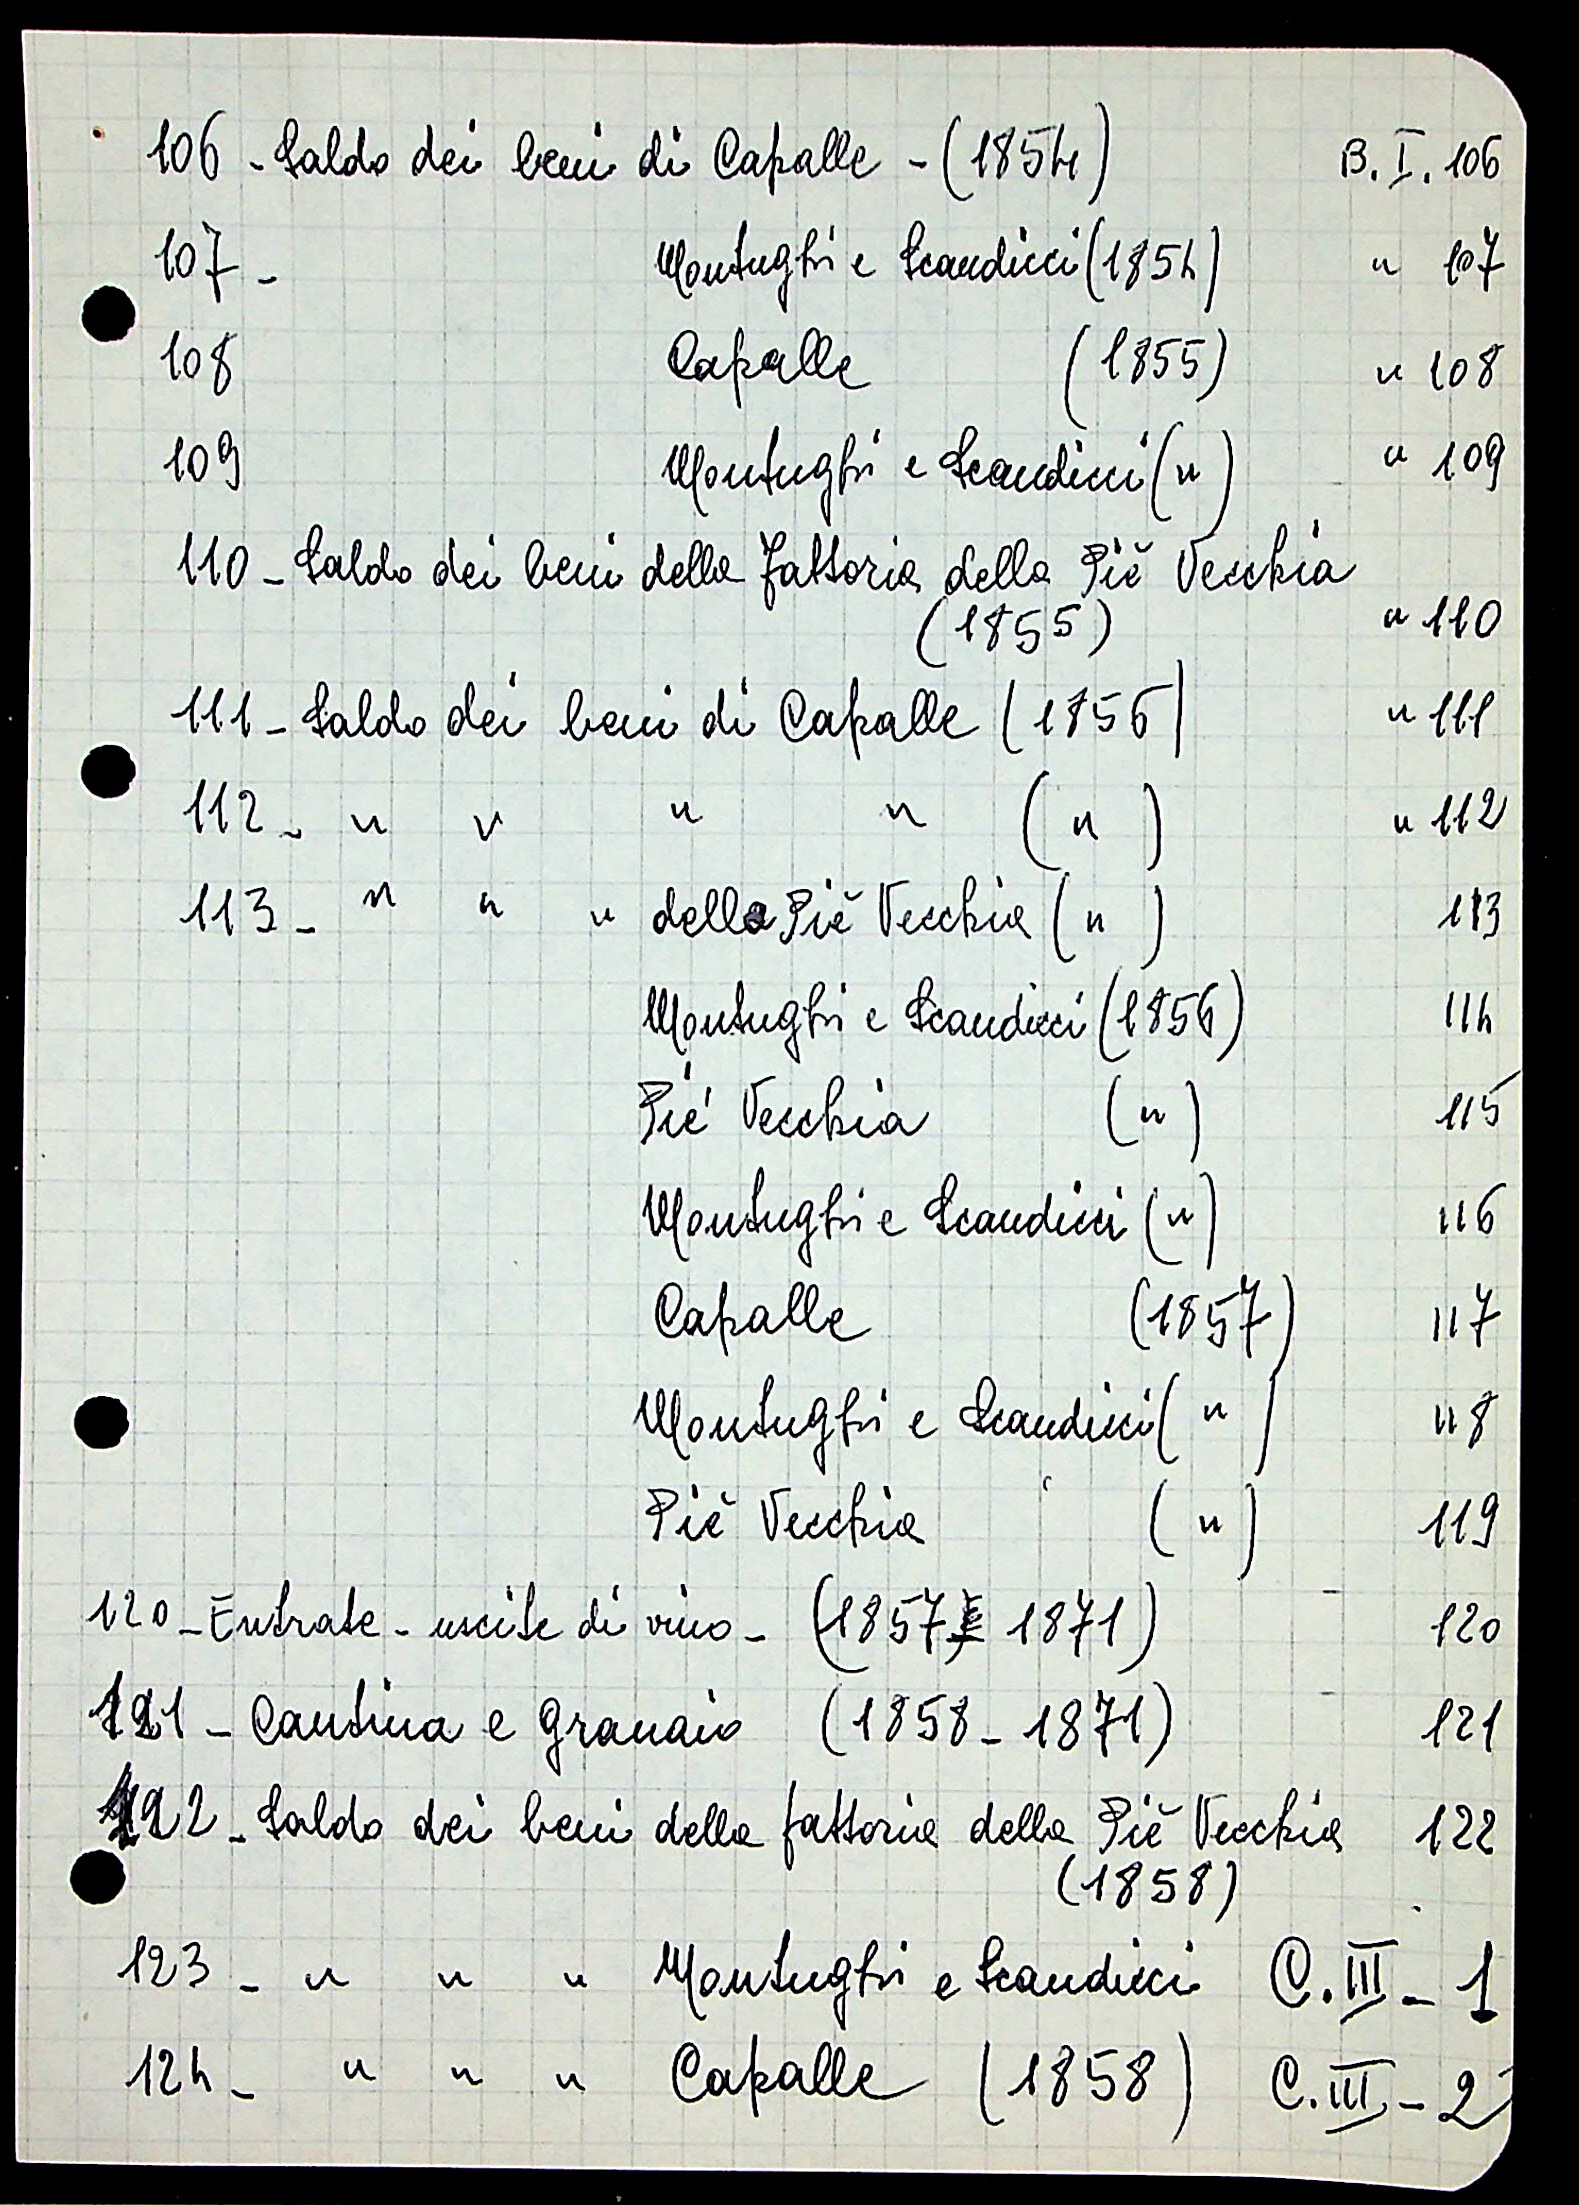 106 - Saldo dei beni di Capalle - (1854) B. I. 106
107 - Montughi e Scandicci (1854) " 107
108 Capalle (1855) " 108
109 Montughi e Scandicci (") " 109
110 - Saldo dei beni della Fattoria della Piè Vecchia
(1855) " 110
111 - Saldo dei beni di Capalle (1856) " 111
112 - " " " " (") " 112
113 - " " " della Piè Vecchia (") 113
Montughi e Scandicci (1856) 114
Pié Vecchia (") 115
Montughi e Scandicci (") 116
Capalle (1857) 117
Montughi e Scandicci (") 118
Piè Vecchia (") 119
120 - Entrate - uscite di vino - (1857 1871) 120
121 - Cantina e granaio (1858 - 1871) 121
122 - Saldo dei beni della fattoria della Piè Vecchia 122
(1858)
123 - " " " Montughi e Scandicci C. III - 1
124 - " " " Capalle (1858) C. III - 2